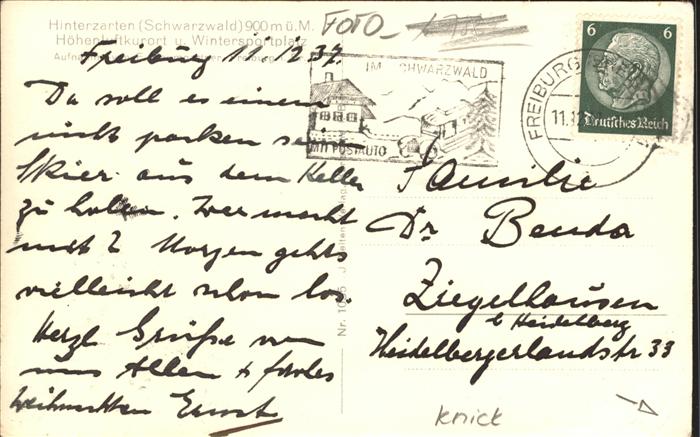 Hinterzarten (Schwarzwald) 900 m ü. M.
Höhenluftkurort u. Wintersportplatz
FOTO
Freiburg 11.12.37.
Da soll es einem
nicht packen seine
Skier aus dem Keller
zu holen. Wer macht
mit? Morgen gehts
vielleicht schon los.
Herzl Grüße von
uns Allen & frohes
Weihnachten Ernst
IM SCHWARZWALD
MIT POSTAUTO
FREIBURG
11.1
6 6
Deutsches Reich
Familie
Dr Benda
Ziegelhausen
b Heidelberg
Heidelbergerlandstr 33
Nr. 10
knick